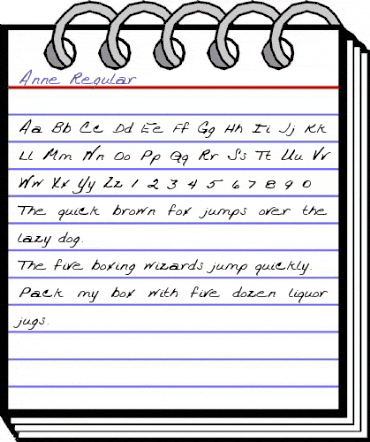 Anne Regular
Aa Bb Cc Dd Ee Ff Gg Hh Ii Jj Kk
Ll Mm Nn Oo Pp Qq Rr Ss Tt Uu Vv
Ww Xx Yy Zz 1 2 3 4 5 6 7 8 9 0
The quick brown fox jumps over the
lazy dog.
The five boxing wizards jump quickly.
Pack my box with five dozen liquor
jugs.